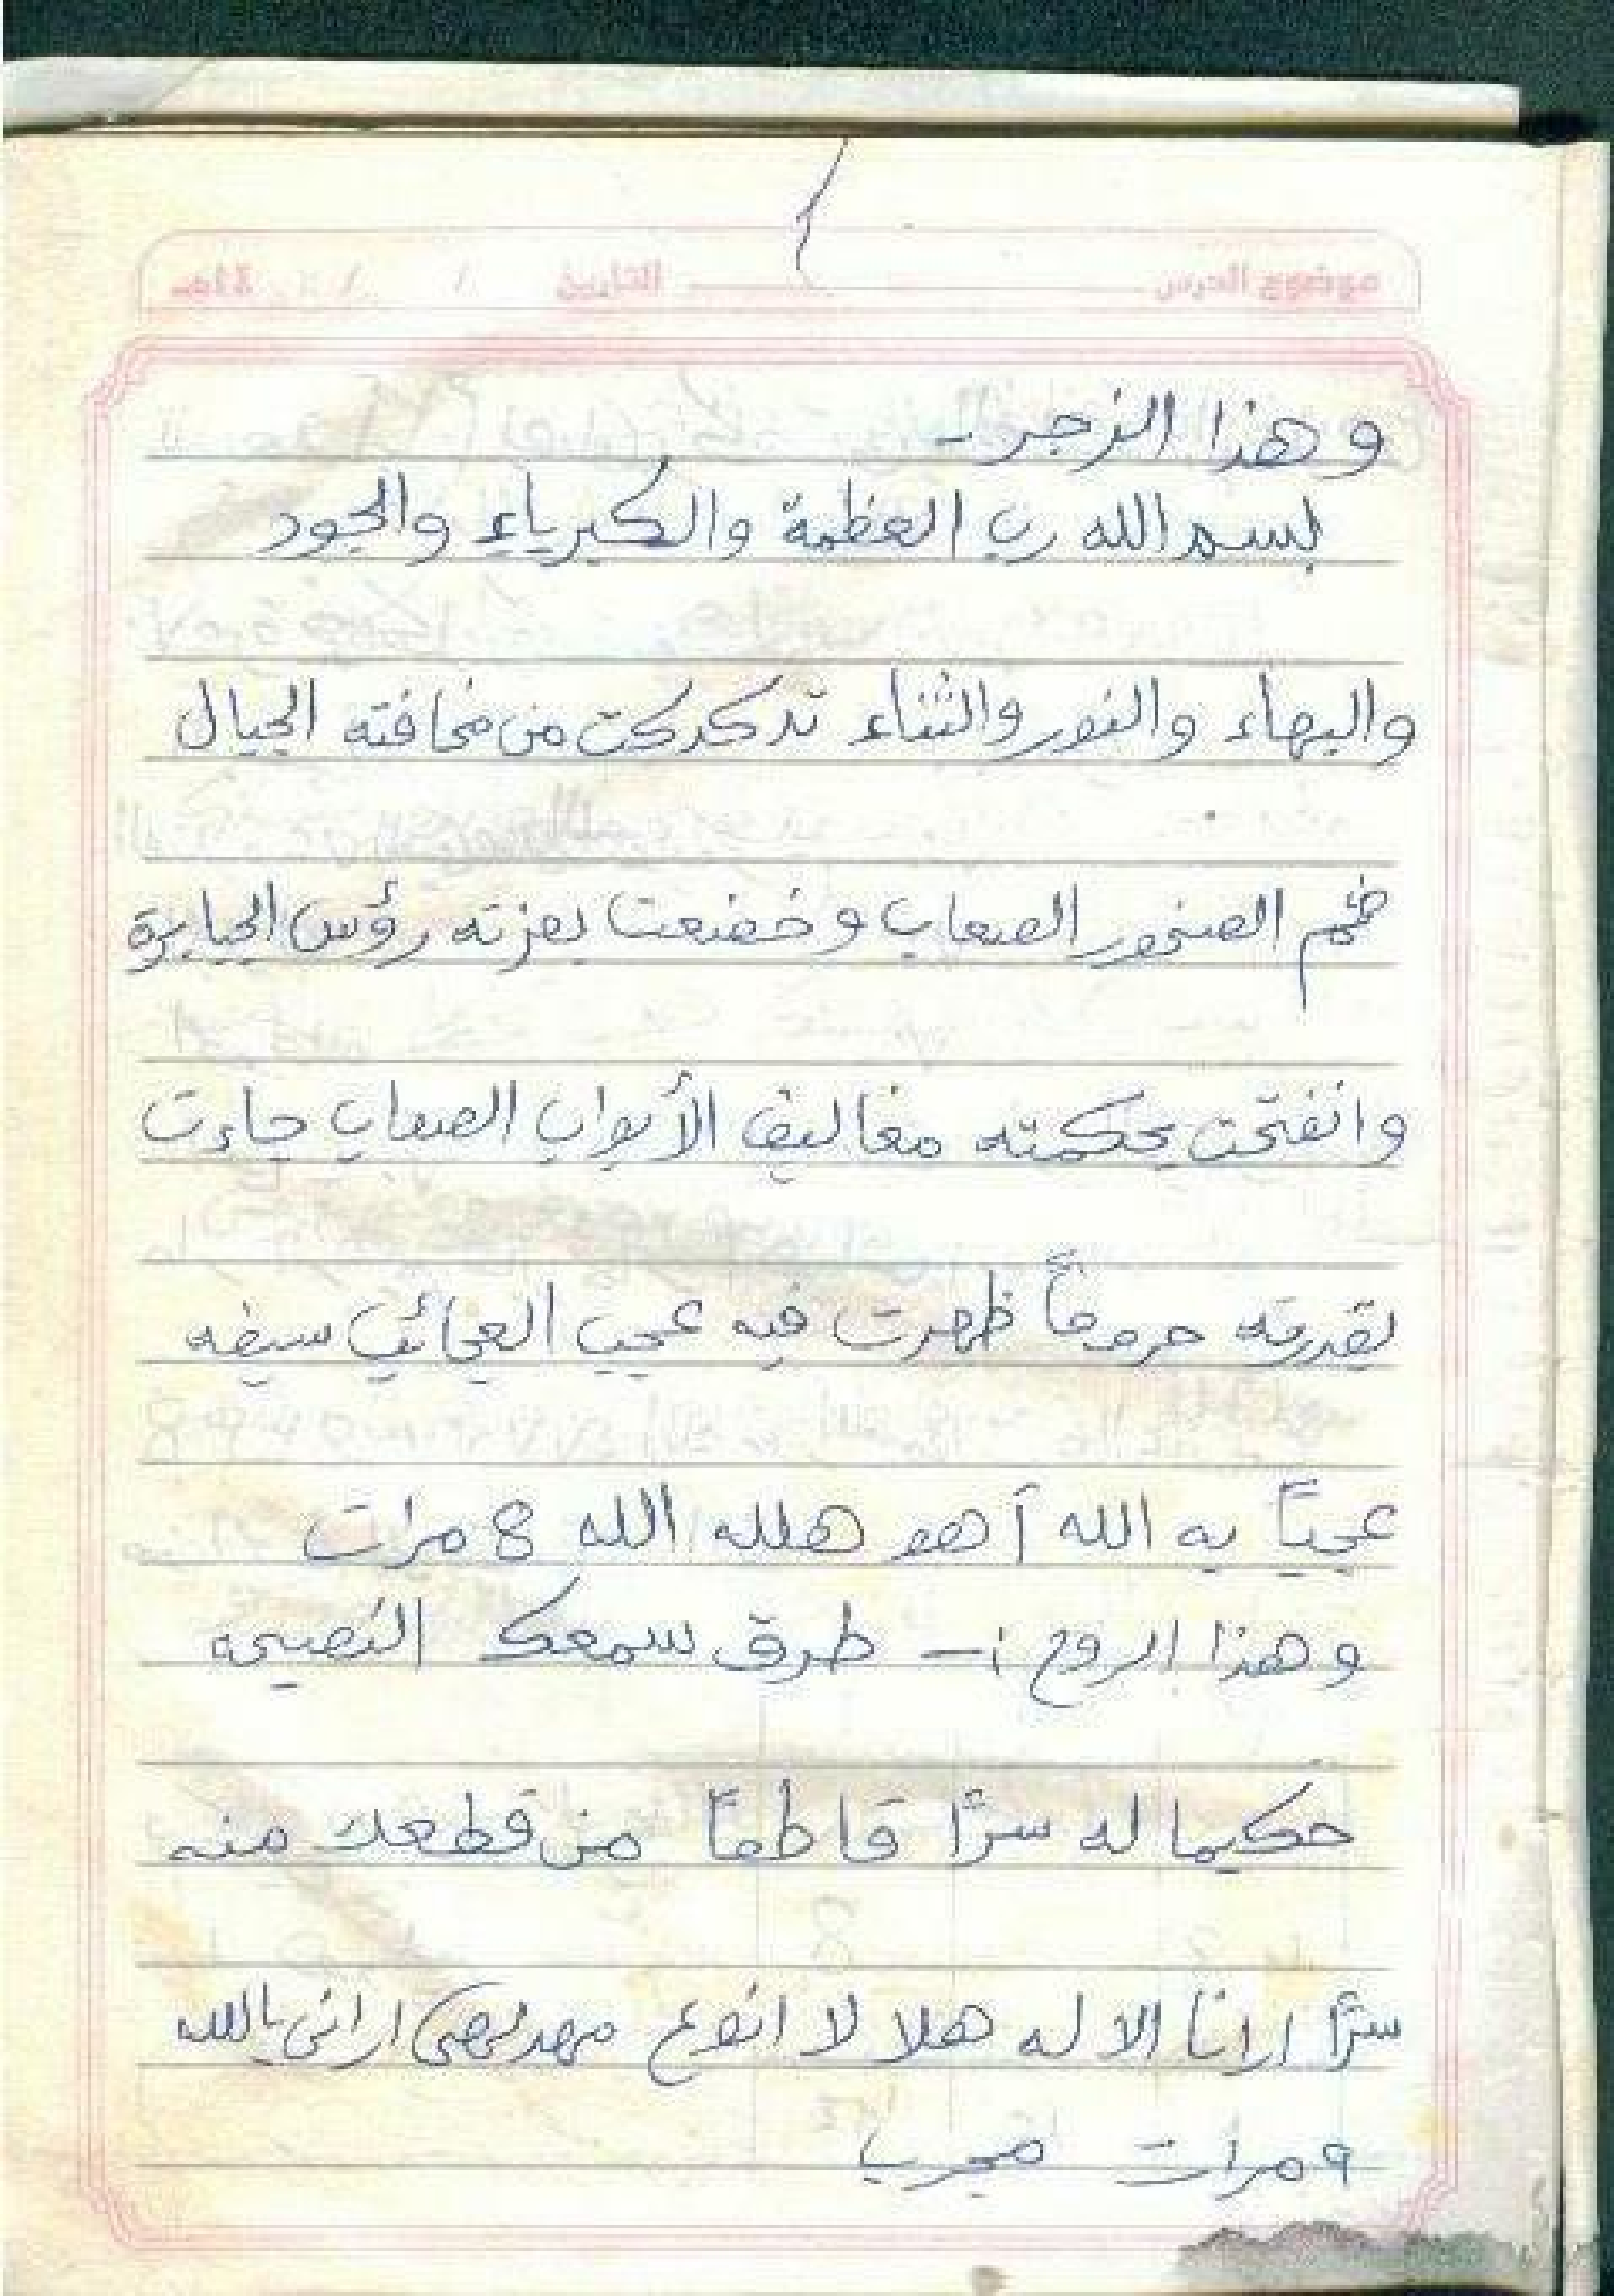 موضوع الدرس التاريخ / / ١٤ه
وهذا الزجر-
بسم الله رب العظمة والكبرياء والجود
والبهاء والنور والثناء تدكدكت من مخافته الجبال
الصخور الصعاب وخضعت بعزته رؤس الجبابرة
وانفتحت بحكمته مغاليق الأبواب الصعاب جاءت
بقدرته حروفاً ظهرت فيه عجب العجائب سيفه
عجيباً به الله أهو هلله الله 8 مرات
وهذا الروح :- طرق سمعك النصيحه
حكيما له سرًا قاطعاً من قطعك منه
سرًا ارانا الاله هلا لا انوع ارانى بالله
٩ مرات مجرب